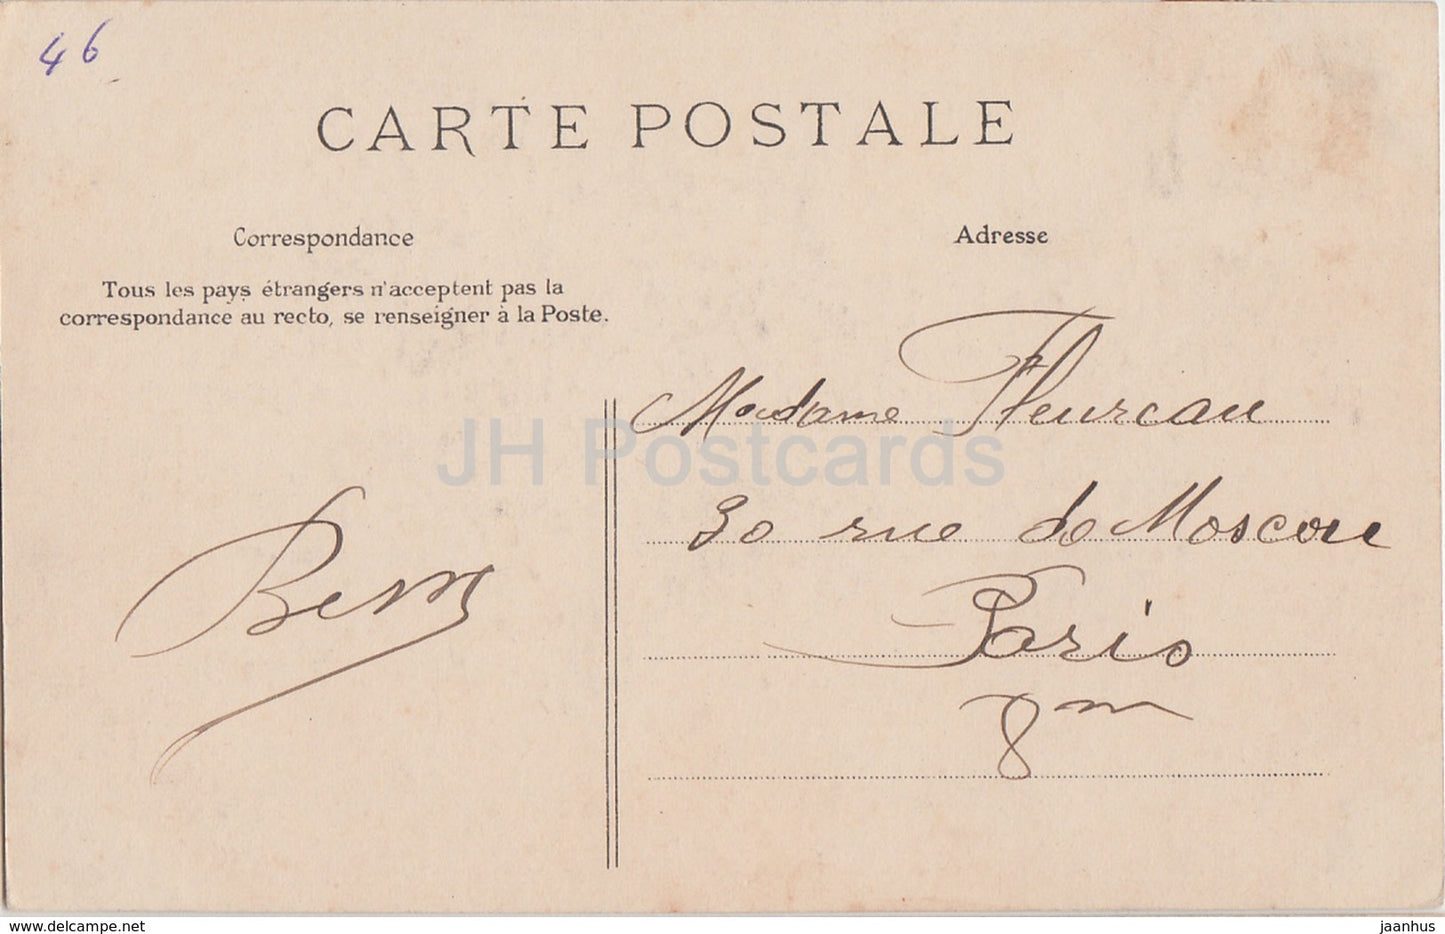 46
CARTE POSTALE
Correspondance
Tous les pays étrangers n'acceptent pas la
correspondance au recto, se renseigner à la Poste.
Adresse
Madame Fleureau
30 rue de Moscou
Paris
8m
JH Postcards
www.delcampe.net
jaanhus